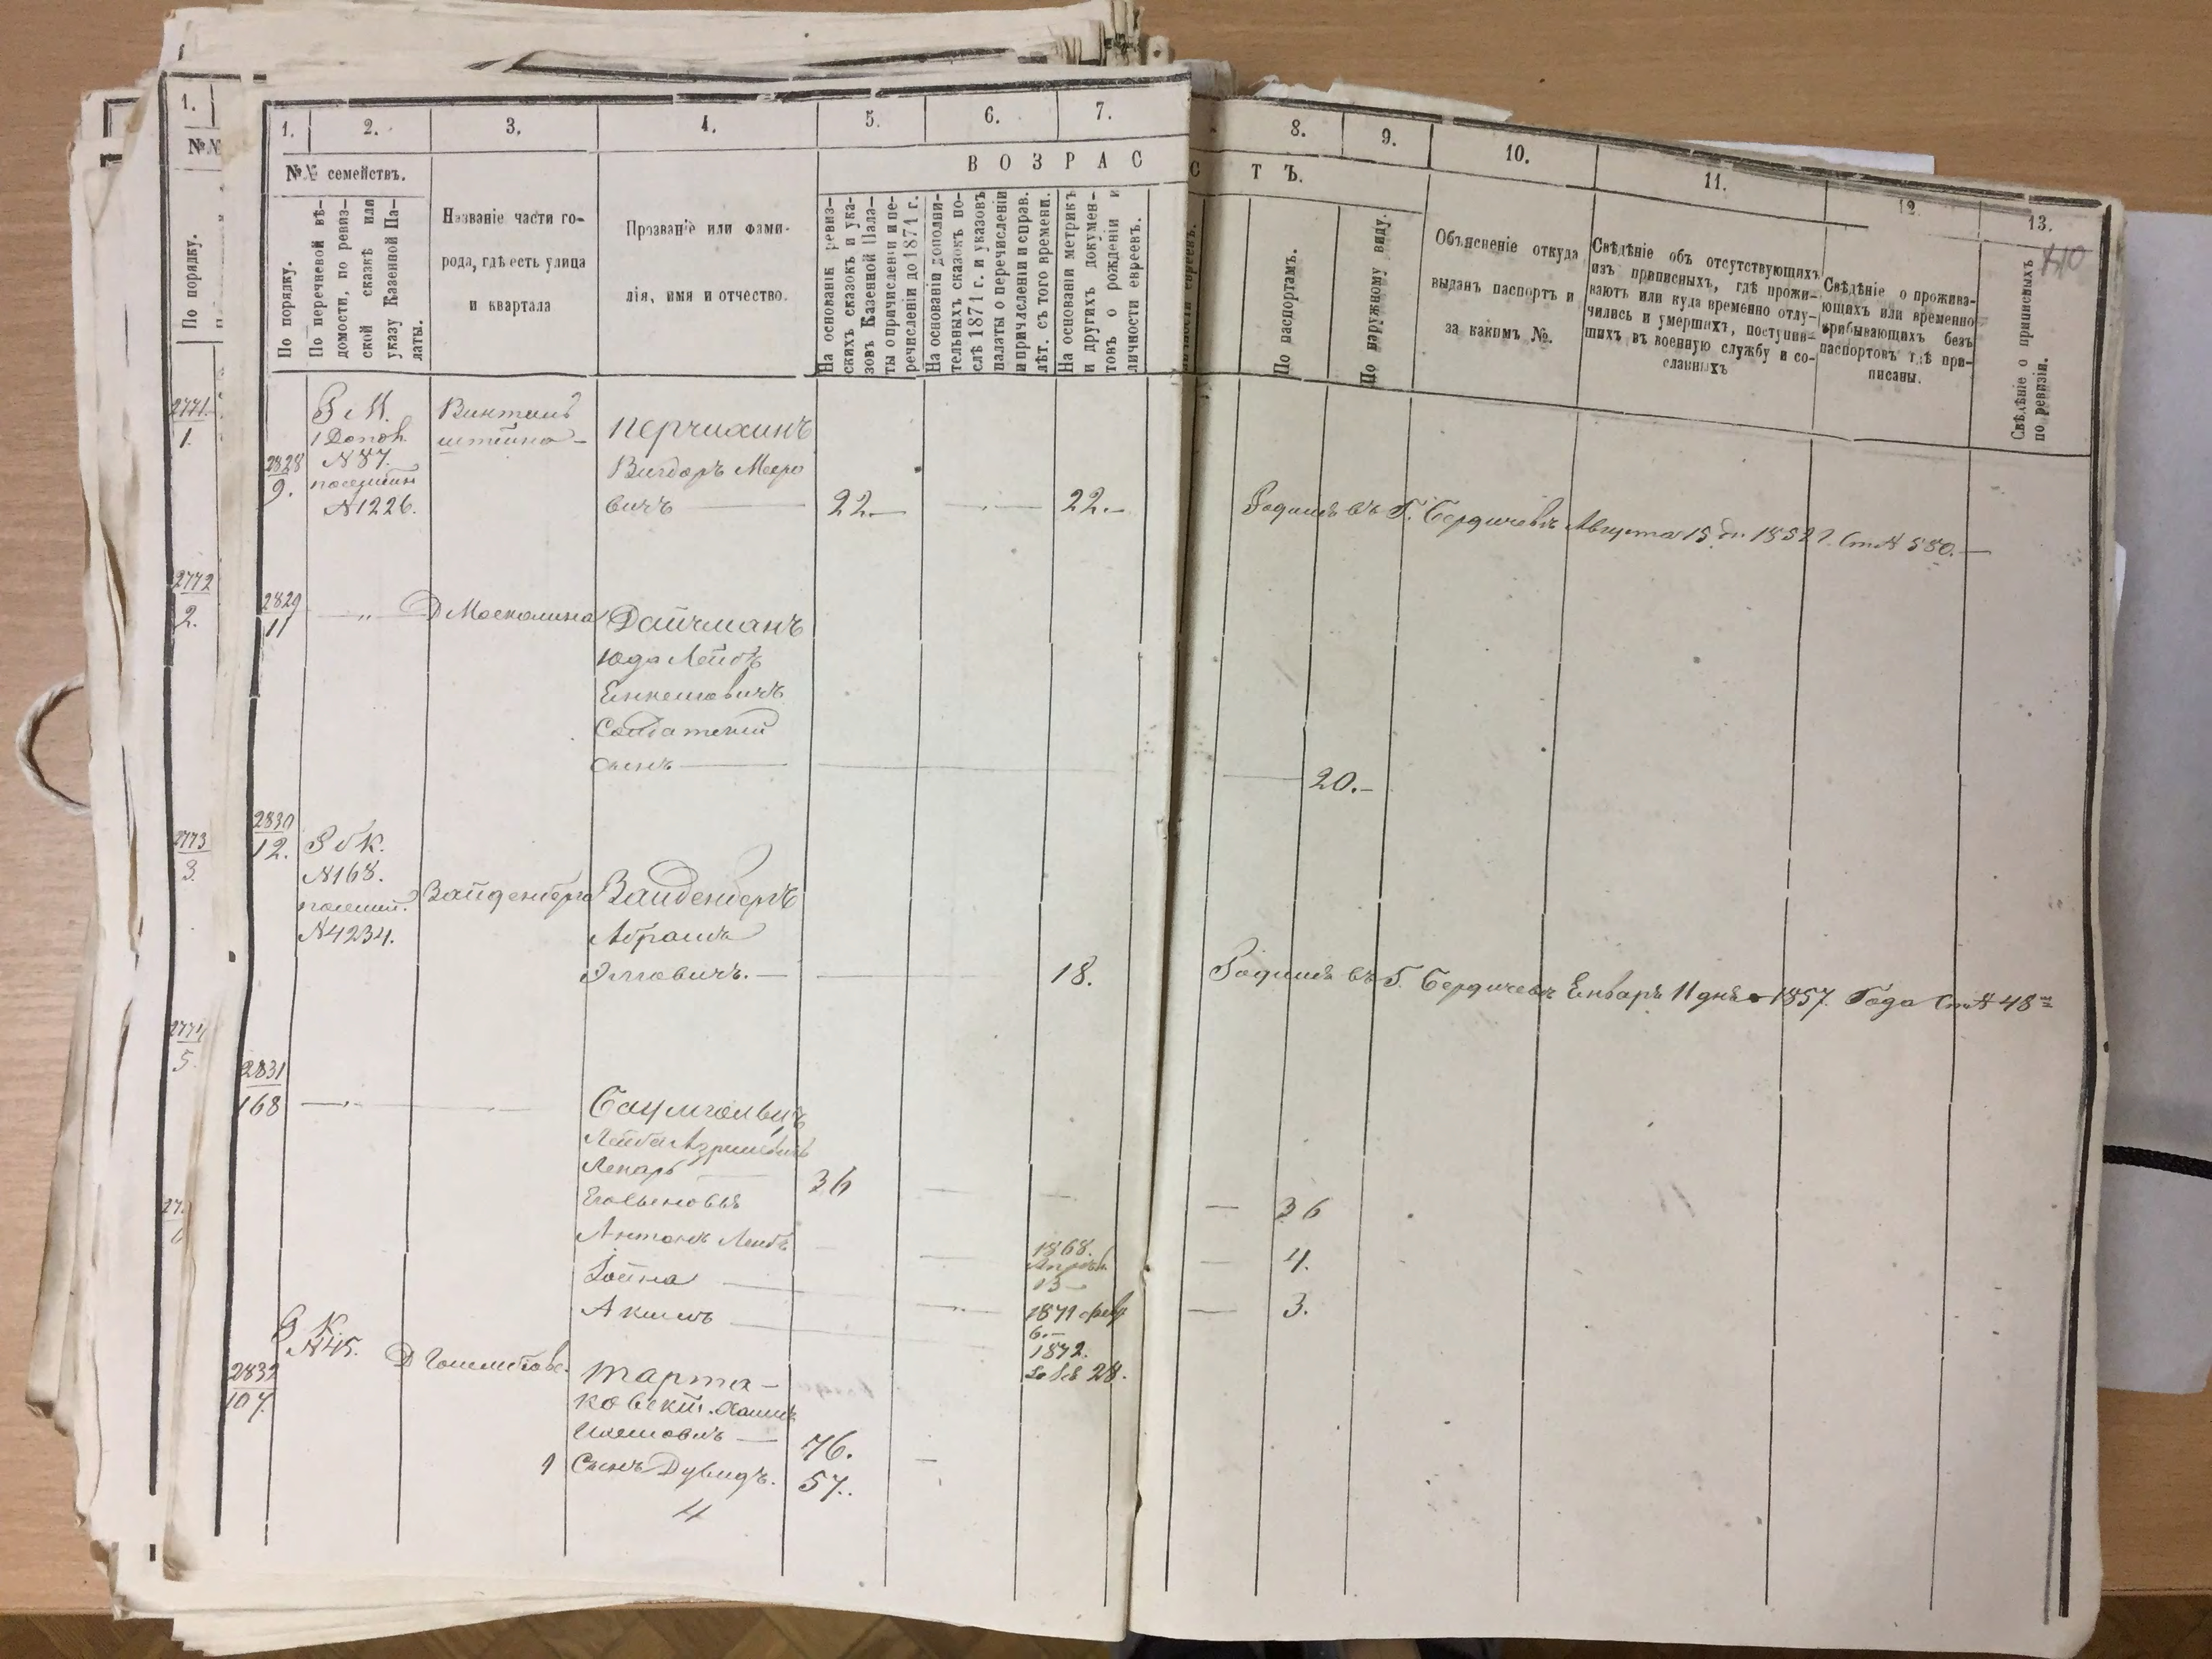 1.
№№
По порядку.
2771.
1.
2772
2.
2773
3.
2774
5.
1.
2.
3.
4.
5.
6.
7.
8.
9.
10.
11.
12.
13.
№№ семействъ.
ВОЗРАС
С
ТЪ.
По порядку.
По перечневой вѣ-
домости, по ревиз-
ской сказкѣ или
указу Казенной Па-
латы.
Названіе части го-
рода, гдѣ есть улица
и квартала
Прозваніе или фами-
лія, имя и отчество.
На основаніи ревиз-
скихъ сказокъ и ука-
зовъ Казенной Пала-
ты о причисленіи и пе-
речисленіи до 1871 г.
На основаніи дополни-
тельныхъ сказокъ по-
слѣ 1871 г. и указовъ
палаты о перечисленіи
и причисленіи и справ.
лѣт. съ того времени.
На основаніи метрикъ
и другихъ докумен-
товъ о рожденіи и
личности евреевъ.
По паспортамъ.
По наружному виду.
Объясненіе откуда
выданъ паспортъ и
за какимъ №.
Свѣдѣніе объ отсутствующихъ
изъ приписныхъ, гдѣ прожи-
ваютъ или куда временно отлу-
чились и умершихъ, поступив-
шихъ въ военную службу и со-
сланныхъ
Свѣдѣніе о прожива-
ющихъ или временно
прибывающихъ безъ
паспортовъ гдѣ при-
писаны.
Свѣдѣніе о приписныхъ
по ревизіи.
410
2828
9.
Р М.
1 Допол.
№ 87.
№ 1226.
Перчихинъ
Вигдоръ Мееро
вичъ
22.
22.
Родился въ Г. Бердичевѣ Августа 15 дн. 1852 г. Ст № 580.
2829
11
"
Д Москалика
Дайчманъ
Юда Лейбъ
Енкелевичъ
Солдатскій
сынъ
20.
2830
12.
Р б К.
№ 168.
№ 4234.
Вайденберга
Вайденбергъ
Абрамъ
Эллевичъ.
18.
Родился въ Г. Бердичевѣ Январь 11 дня 1857. Года Ст № 48
2831
168
Лейба Азриелевичъ
Лекарь
36
36
Его сыновья
Антонъ Лейбъ
1868.
4.
Акимъ
1871 февр
6.
3.
1872.
28.
Р К.
№ 45.
2832
107.
Тарта-
ковскій. Хаимъ
76.
1
Сынъ Дувидъ.
57.
4